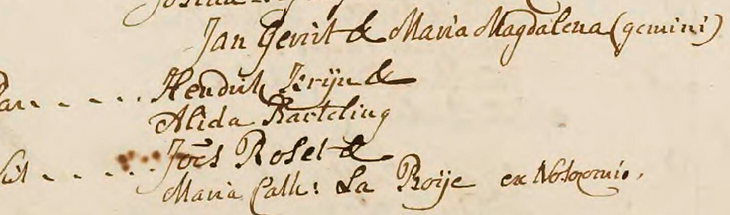 Jan Gerrit & Maria Magdalena (gemini)
Par. - - - - Hendrik Krijn &
Alida Barteling
Sit - - - - - Joēs Roset &
Maria Cath: La Roije ex Nosocomio.